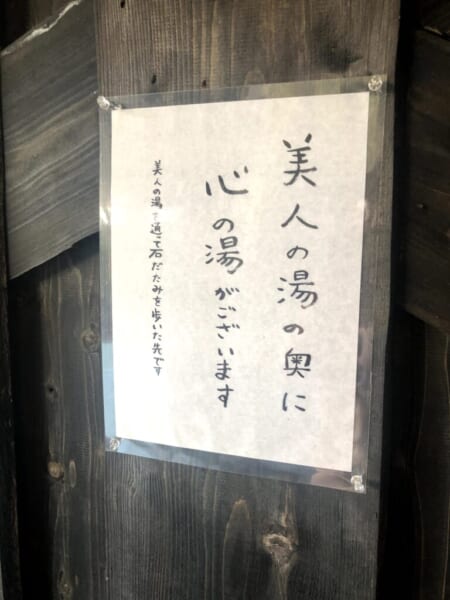 美人の湯の奥に
心の湯がございます
美人の湯を通って石だたみを歩いた先です